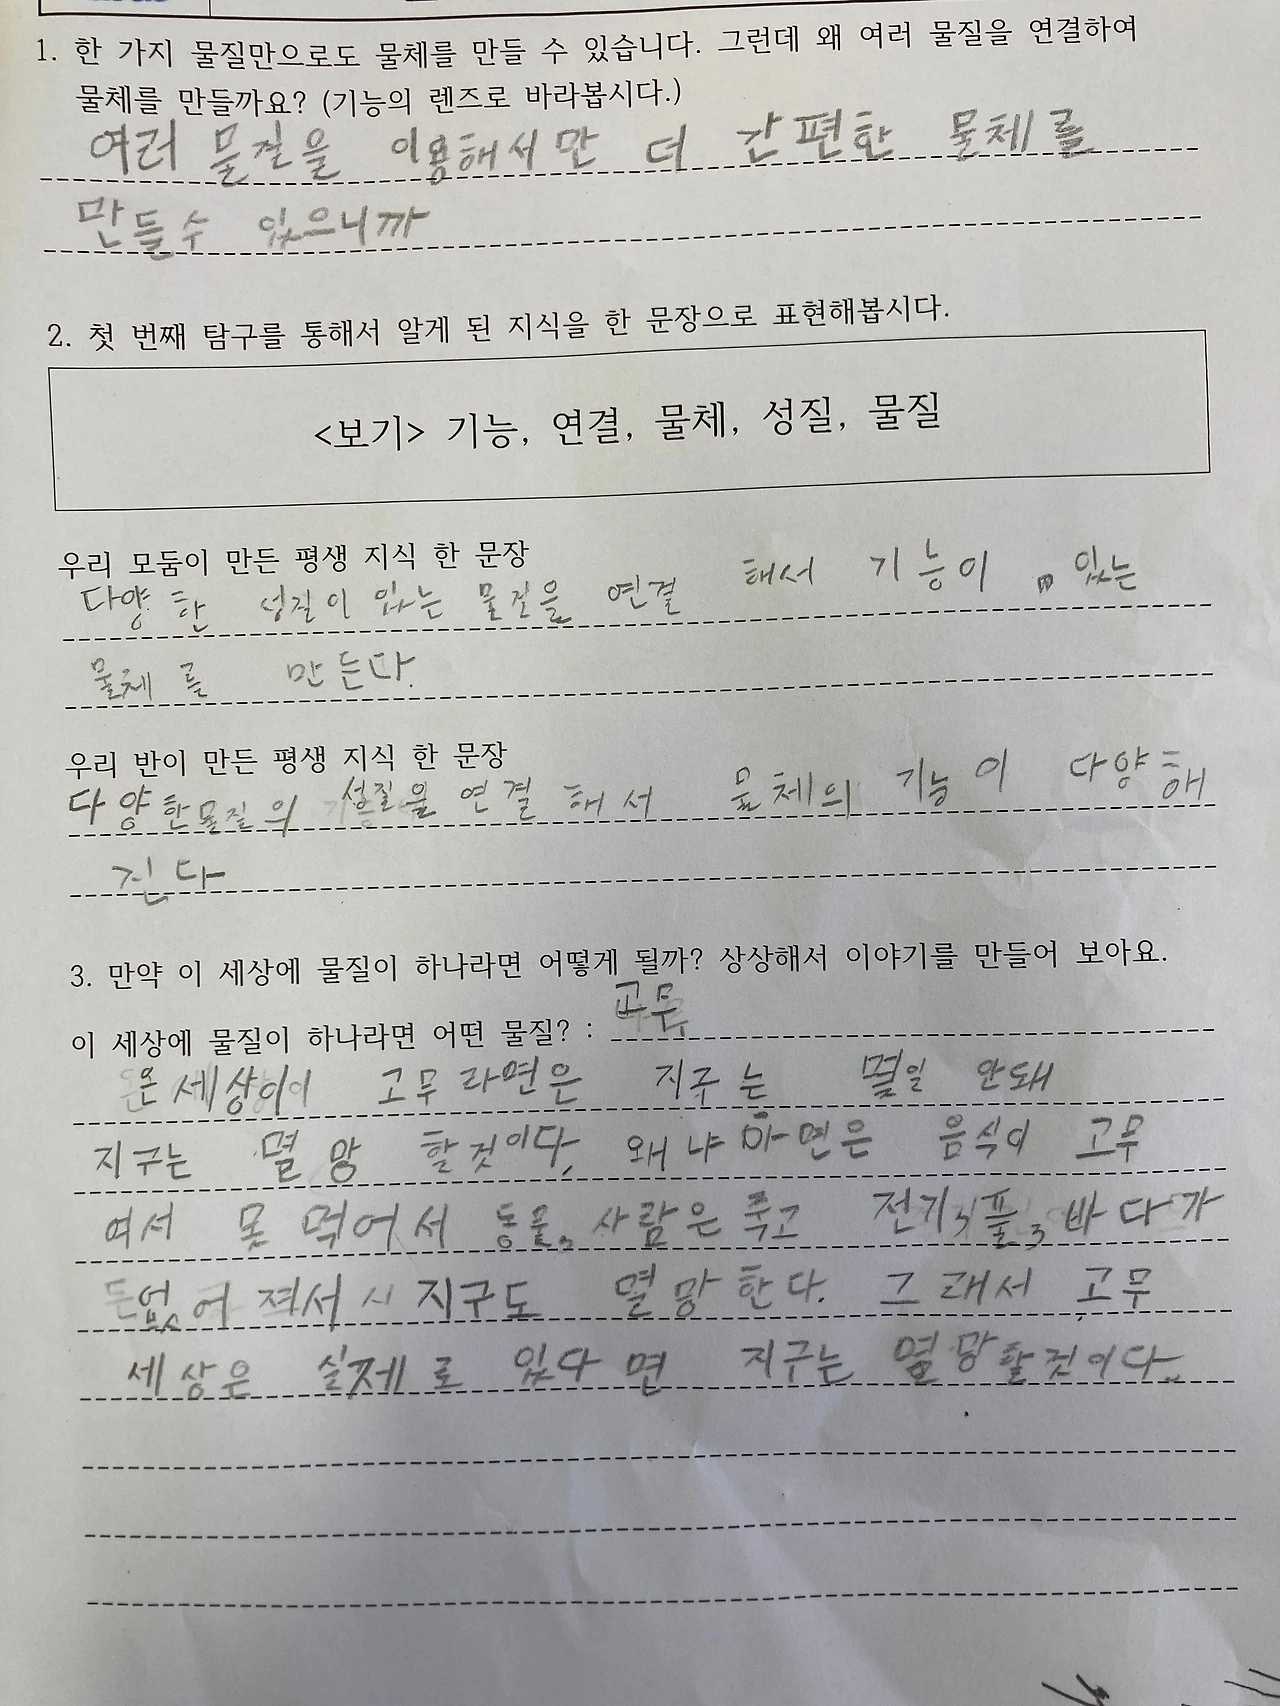 1. 한 가지 물질만으로도 물체를 만들 수 있습니다. 그런데 왜 여러 물질을 연결하여
물체를 만들까요? (기능의 렌즈로 바라봅시다.)
여러 물질을 이용해서만 더 간편한 물체를
만들수 있으니까
2. 첫 번째 탐구를 통해서 알게 된 지식을 한 문장으로 표현해봅시다.
<보기> 기능, 연결, 물체, 성질, 물질
우리 모둠이 만든 평생 지식 한 문장
다양한 성질이 있는 물질을 연결 해서 기능이 있는
물체를 만든다.
우리 반이 만든 평생 지식 한 문장
다양한물질의 성질을 연결해서 물체의 기능이 다양해
진다
3. 만약 이 세상에 물질이 하나라면 어떻게 될까? 상상해서 이야기를 만들어 보아요.
이 세상에 물질이 하나라면 어떤 물질? : 고무
온 세상이 고무라면은 지구는 몇일 안돼
지구는 멸망 할것이다, 왜냐하면은 음식이 고무
여서 못 먹어서 동물, 사람은 죽고 전기, 풀, 바다가
없어져서 지구도 멸망한다. 그래서 고무
세상은 실제로 있다면 지구는 멸망할것이다.